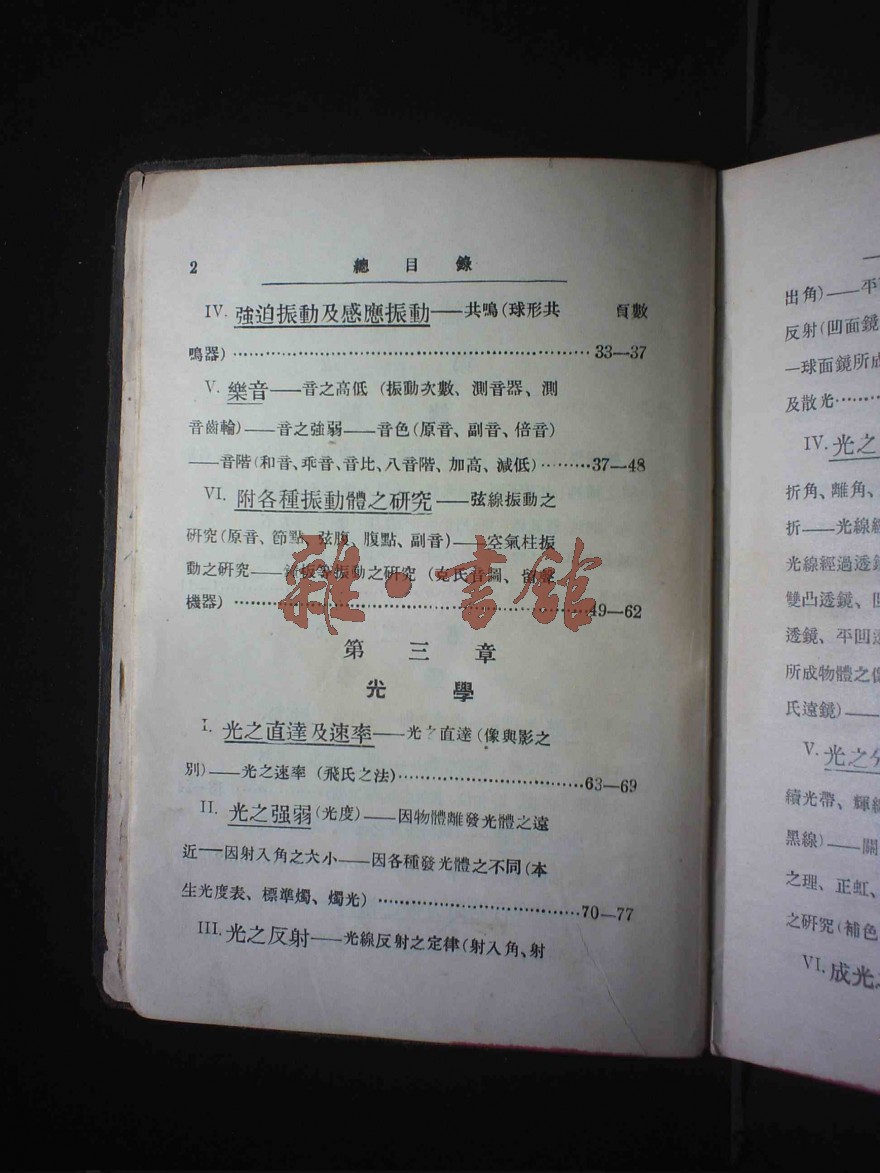 2 總目錄
IV. 強迫振動及感應振動——共鳴(球形共 頁數
鳴器)……33—37
V. 樂音——音之高低(振動次數、測音器、測
音齒輪)——音之強弱——音色(原音、副音、倍音)
——音階(和音、乖音、音比、八音階、加高、減低)……37—48
VI. 附各種振動體之研究——弦線振動之
研究(原音、節點、弦腹、腹點、副音)——空氣柱振
動之研究——等振動之研究(克氏音圖、留聲
機器)……49—62
第三章
光學
I. 光之直達及速率——光之直達(像與影之
別)——光之速率(飛氏之法)……63—69
II. 光之强弱(光度)——因物體離發光體之遠
近——因射入角之大小——因各種發光體之不同(本
生光度表、標準燭、燭光)……70—77
III. 光之反射——光線反射之定律(射入角、射
出角)——平
反射(凹面鏡
—球面鏡所成
及散光……
IV. 光之
折角、離角、
折——光線經
光線經過透鏡
雙凸透鏡、
透鏡、平凹透
所成物體之像
氏遠鏡)——
V. 光之分
續光帶、輝線
黑線)——
之理、正虹、
之研究(補色
VI. 成光
雜·書館